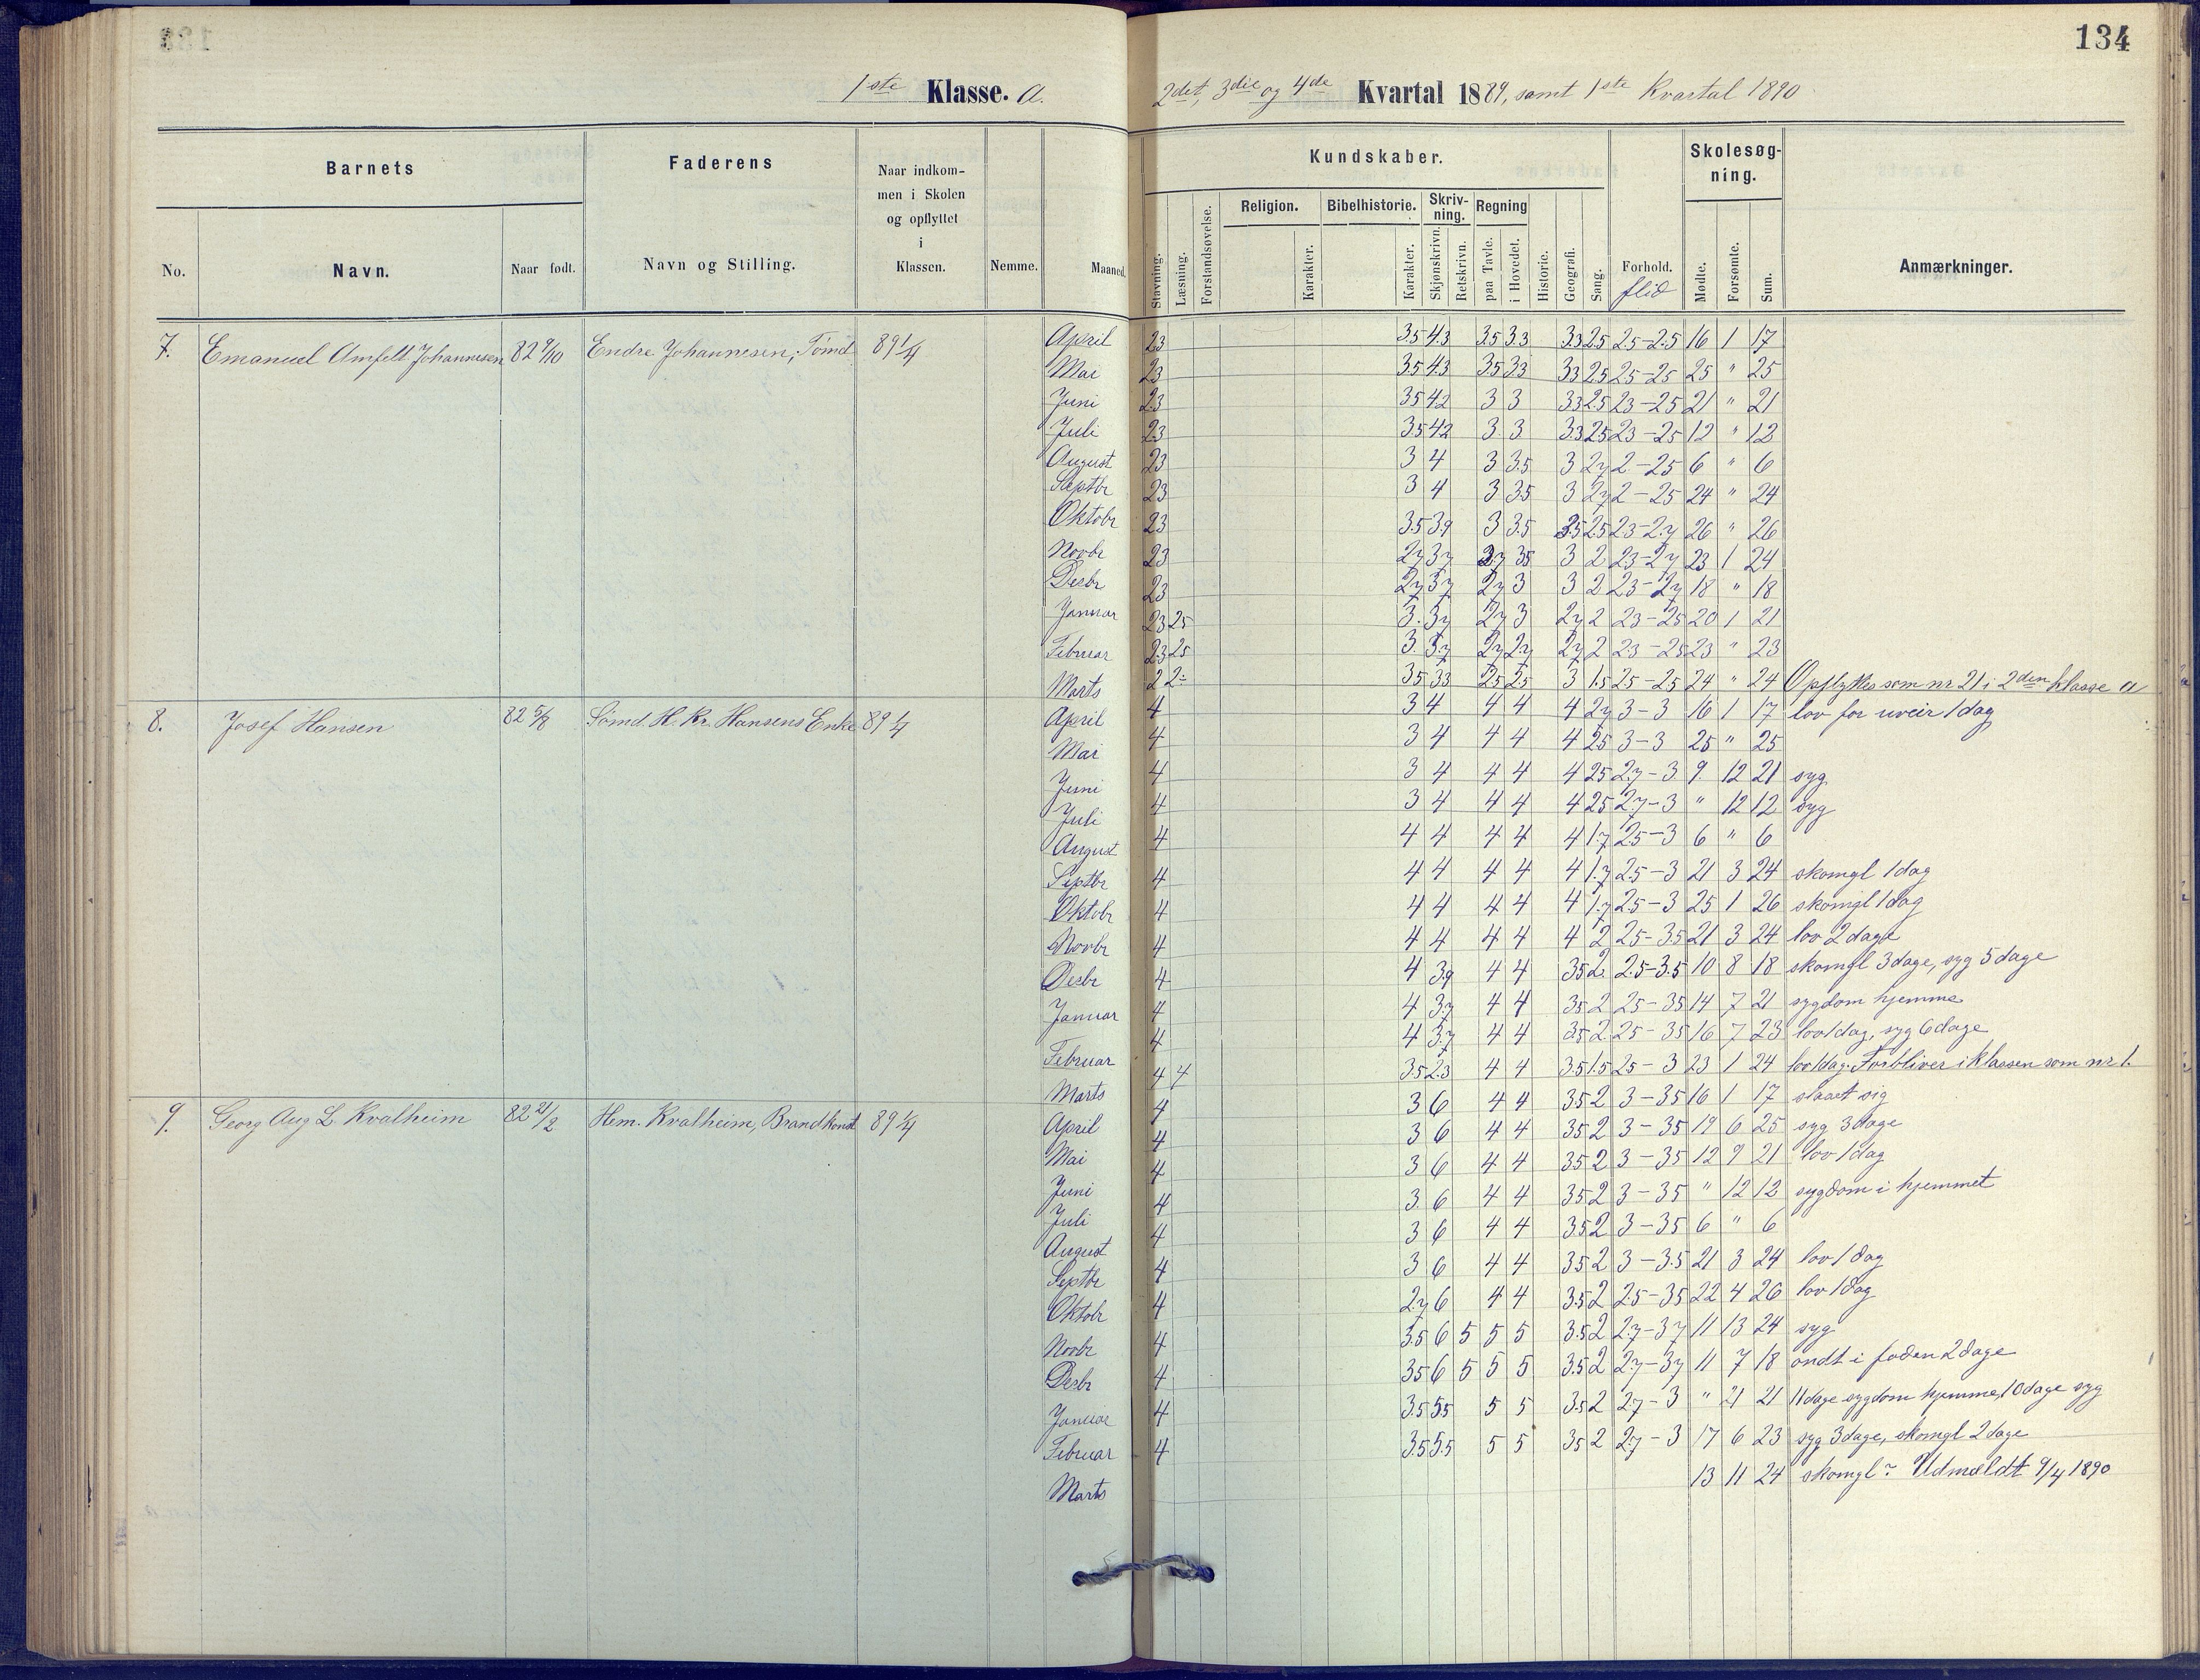 134
1ste Klasse. a.
2det, 3die og 4de Kvartal 1889, samt 1ste Kvartal 1890
Barnets
Faderens
Naar indkom-
men i Skolen
og opflyttet
i
Klassen.
No.
Navn.
Naar født.
Navn og Stilling.
Nemme.
Maaned.
Kundskaber.
Skolesøg-
ning.
Religion.
Bibelhistorie.
Skriv-
ning.
Regning
Stavning.
Læsning.
Forstandsøvelse.
Karakter.
Karakter.
Skjønskrivn.
Retskrivn.
paa Tavle.
i Hovedet.
Historie.
Geografi.
Sang.
Forhold.
flid
Mødte.
Forsømte.
Sum.
Anmærkninger.
7. Emanuel Amfelt Johannesen 82 9/10 Endre Johannesen, Tømd 89 1/4 April 23 3.5 4.3 3.5 3.3 3.3 2.5 2.5-2.5 16 1 17
Mai 23 3.5 4.3 3.5 3.3 3.3 2.5 2.5-2.5 25 " 25
Juni 23 3.5 4.2 3 3 3.3 2.5 2.3-2.5 21 " 21
Juli 23 3.5 4.2 3 3 3.3 2.5 2.3-2.5 12 " 12
August 23 3 4 3 3.5 3 2.7 2-2.5 6 " 6
Septbr 23 3 4 3 3.5 3 2.7 2-2.5 24 " 24
Oktobr 23 3.5 3.9 3 3.5 3.5 2.5 2.3-2.7 26 " 26
Novbr 23 2.7 3.7 2.7 3.5 3 2 2.3-2.7 23 1 24
Desbr 23 2.7 3.7 2.7 3 3 2 2.3-2.7 18 " 18
Januar 23 25 3. 3.7 2.7 3 2.7 2 2.3-2.5 20 1 21
Februar 23 25 3. 3.7 2.7 2.7 2.7 2 2.3-2.5 23 " 23
Marts 2 2 3.5 3.3 2.5 2.5 3 1.5 2.5-2.5 24 " 24 Opflyttes som nr 21 i 2den klasse a
8. Josef Hansen 82 5/8 Sømd. H. Kr. Hansens Enke 89 1/4 April 4 3 4 4 4 4 2.7 3-3 16 1 17 lov for uveir 1 dag
Mai 4 3 4 4 4 4 2.5 3-3 25 " 25
Juni 4 3 4 4 4 4 2.5 2.7-3 9 12 21 syg
Juli 4 3 4 4 4 4 2.5 2.7-3 " 12 12 syg
August 4 4 4 4 4 4 1.7 2.5-3 6 " 6
Septbr 4 4 4 4 4 4 1.7 2.5-3 21 3 24 skomgl 1 dag
Oktobr 4 4 4 4 4 4 1.7 2.5-3 25 1 26 skomgl 1 dag
Novbr 4 4 4 4 4 4 2 2.5-3.5 21 3 24 lov 2 dage
Desbr 4 4 3.9 4 4 3.5 2 2.5-3.5 10 8 18 skomgl 3 dage, syg 5 dage
Januar 4 4 3.7 4 4 3.5 2 2.5-3.5 14 7 21 sygdom hjemme
Februar 4 4 3.7 4 4 3.5 2 2.5-3.5 16 7 23 lov 1 dag, syg 6 dage
Marts 4 4 3.5 2.3 4 4 3.5 1.5 2.5-3 23 1 24 lov 1 dag. Forbliver i klassen som nr 1.
9. Georg Aug L. Kvalheim 82 21/2 Hem. Kvalheim, Brandkonst 89 1/4 April 4 3 6 4 4 3.5 2 3-3.5 16 1 17 slaaet sig
Mai 4 3 6 4 4 3.5 2 3-3.5 19 6 25 syg 3 dage
Juni 4 3 6 4 4 3.5 2 3-3.5 12 9 21 lov 1 dag
Juli 4 3 6 4 4 3.5 2 3-3.5 " 12 12 sygdom i hjemmet
August 4 3 6 4 4 3.5 2 3-3.5 6 " 6
Septbr 4 3 6 4 4 3.5 2 3-3.5 21 3 24 lov 1 dag
Oktobr 4 2.7 6 4 4 3.5 2 2.5-3.5 22 4 26 lov 1 dag
Novbr 4 3.5 6 5 5 5 3.5 2 2.7-3.7 11 13 24 syg
Desbr 4 3.5 6 5 5 5 3.5 2 2.7-3.7 11 7 18 ondt i foden 2 dage
Januar 4 3.5 5.5 5 5 3.5 2 2.7-3 " 21 21 11 dage sygdom hjemme, 10 dage syg
Februar 4 3.5 5.5 5 5 3.5 2 2.7-3 17 6 23 syg 3 dage, skomgl 2 dage
Marts 13 11 24 skomgl. Udmeldt 9/4 1890